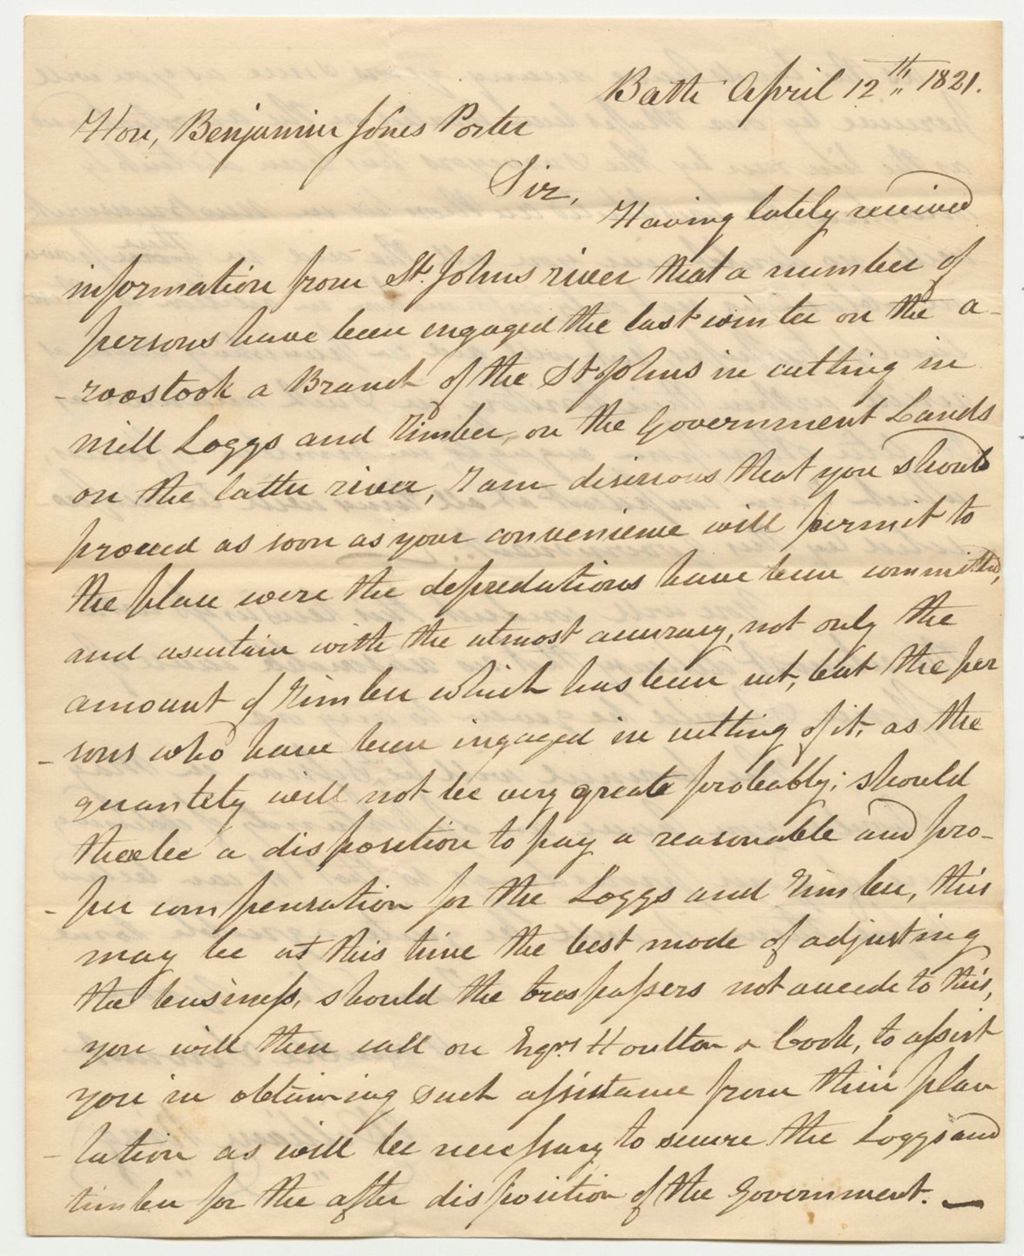 Bath April 12th,, 1821.
Hon, Benjamin Jones Porter
Sir,
Having lately received
information from St. Johns river that a number of
persons have been engaged the last winter on the a-
-roostook a Branch of the St Johns in cutting in
mill Loggs and Timber, on the Government Lands
on the latter river, I am disirious that you should
proceed as soon as your convenience will permit to
the place were the depredations have been committed,
and ascertain with the utmost accuracy, not only the
amount of Timber which has been cut, but the per
-sons who have been ingaged in cutting of it, as the
quantity will not be very greate probably; should
there be a disposition to pay a reasonable and pro-
-per compensation for the Loggs and Timber, this
may be at this time the best mode of adjusting
the business, should the trespassers not accede to this,
you will then call on Esqrs Houlton & Cook, to assist
you in obtaining such assistance from their plan
-tation as will be necessary to secure the Loggs and
timber for the after disposition of the Government. —